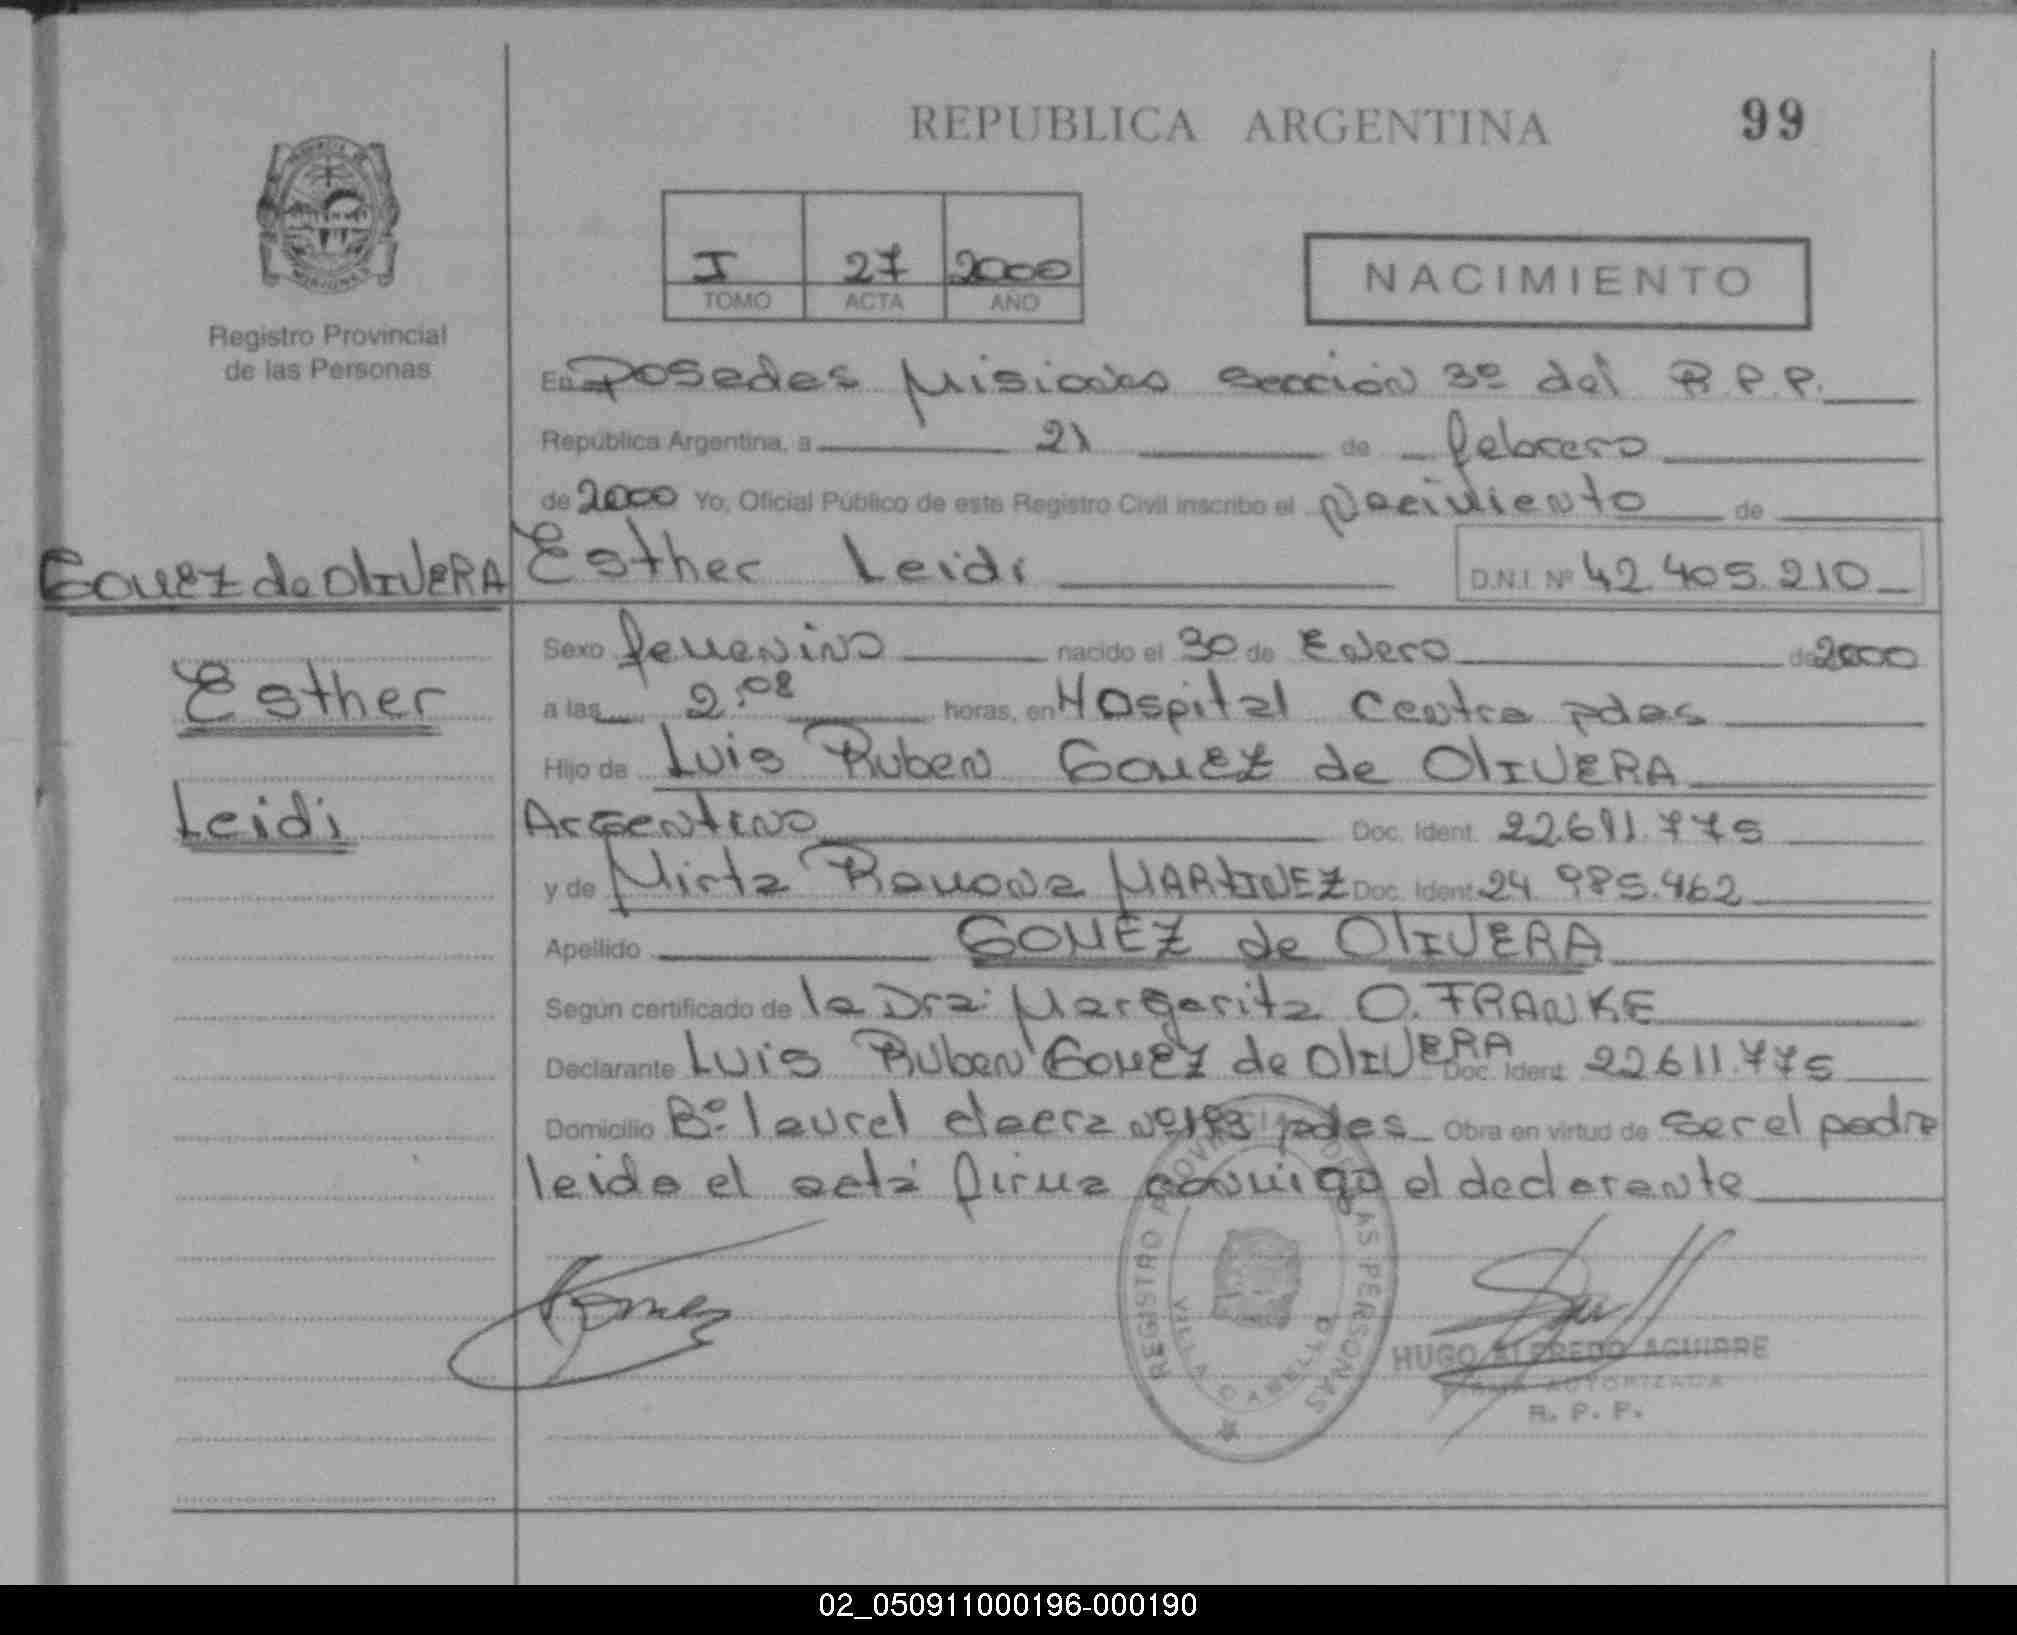 REPUBLICA ARGENTINA 99
I 27 2000
TOMO ACTA AÑO
NACIMIENTO
Registro Provincial
de las Personas
En Posadas Misiones sección 3º del R.P.P.
República Argentina, a 21 de febrero
de 2000 Yo, Oficial Público de este Registro Civil inscribo el Nacimiento de
GOMEZ de OLIVERA Esther Leidi D.N.I. Nº 42.405.210
Sexo femenino nacido el 30 de Enero de 2000
Esther
a las 2:08 horas, en Hospital Centro pdas
Hijo de Luis Ruben GOMEZ de OLIVERA
Leidi
Argentino Doc. Ident. 22.611.775
y de Mirta Ramona MARTINEZ Doc. Ident. 24.985.462
Apellido GOMEZ de OLIVERA
Según certificado de la Dra: Margarita O. FRANKE
Declarante Luis Ruben GOMEZ de OLIVERA Doc. Ident. 22.611.775
Domicilio Bº laurel chacra nº 193 pdas Obra en virtud de ser el padre
leida el acta firma conmigo el declarante
Gomez
REGISTRO PROVINCIAL DE LAS PERSONAS
VILLA CABELLO
HUGO ALFREDO AGUIRRE
FIRMA AUTORIZADA
R. P. P.
02_050911000196-000190